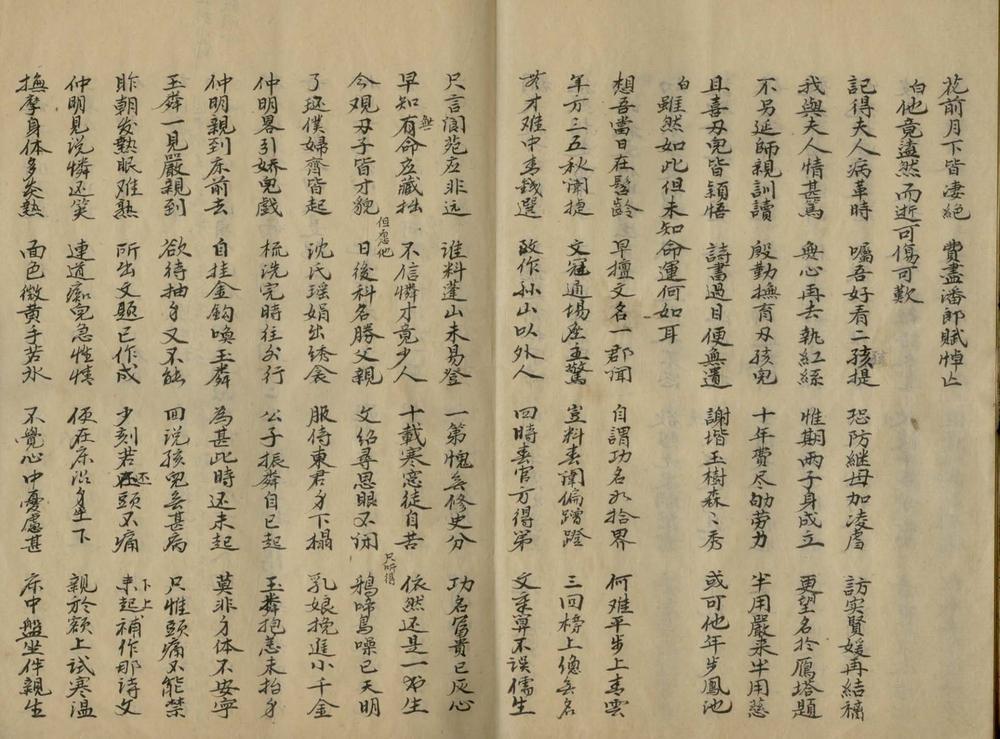 花前月下皆凄絕 費盡潘郎賦悼亡
白他竟溘然而逝可傷可歎
記得夫人病革時 囑吾好看二孩提 恐防継母加凌虐 訪实賢媛再結褵
我與夫人情甚篤 無心再去執紅絲 惟期兩子身成立 更望名於鴈塔題
不另延師親訓讀 殷勤撫育刄孩兒 十年費尽劬劳力 半用嚴来半用慈
且喜刄兒皆穎悟 詩書過目便無遺 謝堦玉樹森〻秀 或可他年步鳳池
白雖然如此但未知命運何如耳
想吾當日在髫齡 早擅文名一郡闻 自謂功名如拾界 何难平步上青雲
年方三五秋闈捷 文冠通場座主驚 豈料春闈偏蹭蹬 三回榜上總無名
芥才难中青錢選 改作孙山以外人 四時春官方得第 文章算不误儒生
尺言闺范应非远 谁料蓬山未易登 一第愧無修史分 功名富貴已灰心
早知有命应藏拙 不信憐才竟少人 十載寒窓徒自苦 依然还是一尔生
今观刄子皆才貌 日後科名勝父親 文绍尋思眼不闭 鴉啼鳥噪已天明
但愿他
只听得
了环僕婦齊皆起 沈氏瑶娟出綉衾 服侍東君身下榻 乳娘挽進小千金
仲明畧引娇兒戲 梳洗完時往外行 公子振舜自已起 玉舜抱恙未抬身
仲明親到床前去 自挂金鈎喚玉舜 為甚此時还未起 莫非身体不安寧
玉舜一見嚴親到 欲待抽身又不能 回说孩兒無甚病 只惟頭痛不能禁
昨朝发熱眠难熟 所出文题已作成 少刻若还頭不痛 下上来起補作那詩文
仲明見说憐还笑 連道痴兒急性情 便在床沿身坐下 親於額上試寒温
撫摩身体多炎熱 面色微黄手若氷 不覺心中憂慮甚 床中盤坐伴親生